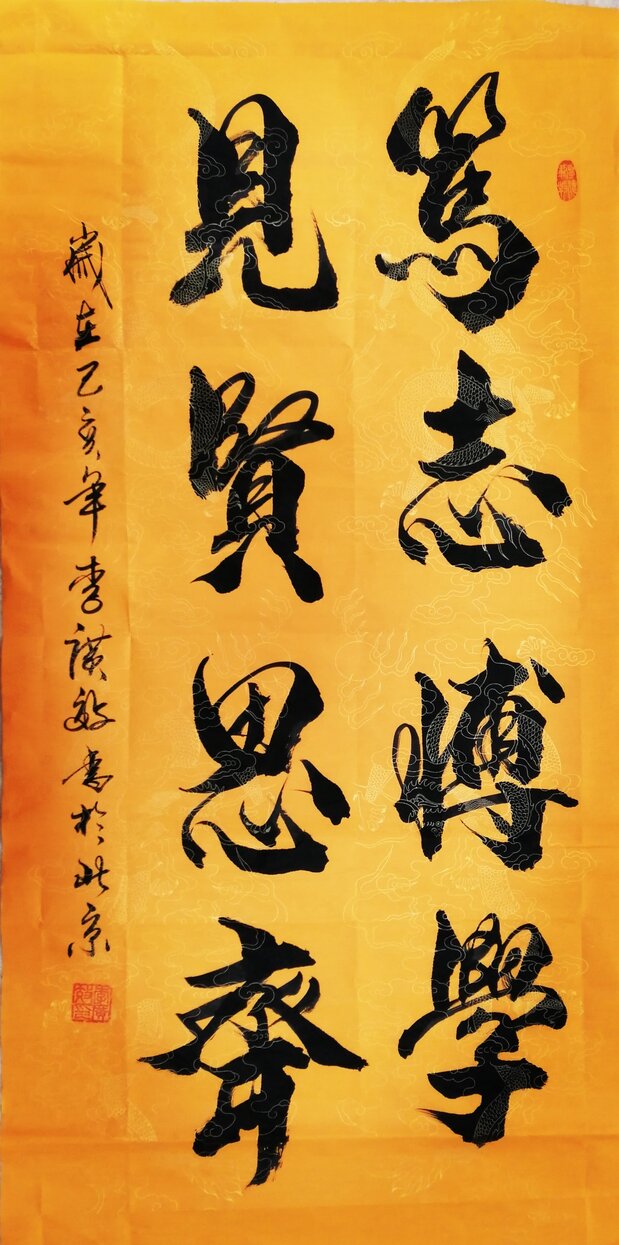 篤志博學
見賢思齊
歲在己亥年李敏書於北京